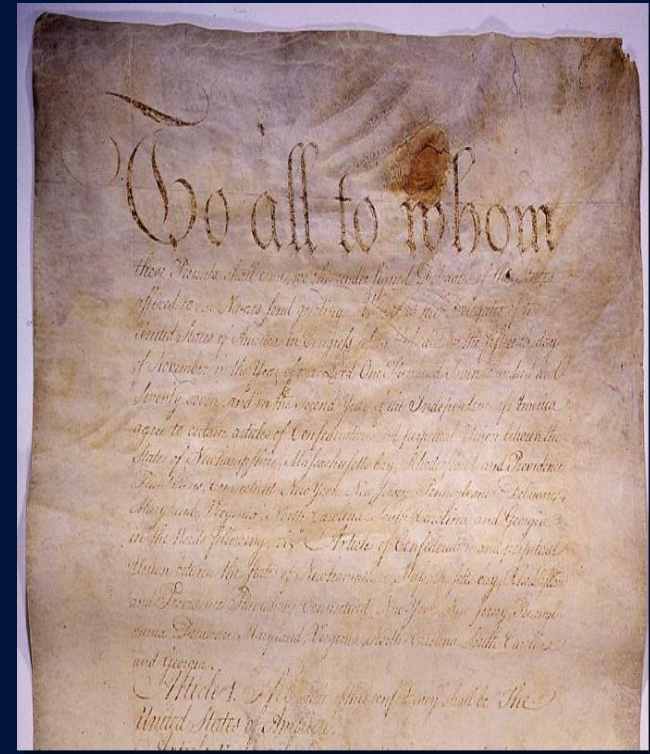 To all to whom
these Presents shall come, we the under signed Delegates of the States
affixed to our Names send greeting. Whereas the Delegates of the
United States of America in Congress assembled did on the fifteenth day
of November in the Year of our Lord One Thousand Seven Hundred and
Seventy seven, and in the Second Year of the Independence of America
agree to certain articles of Confederation and perpetual Union between the
States of Newhampshire, Massachusetts-bay, Rhodeisland and Providence
Plantations, Connecticut, New York, New Jersey, Pennsylvania, Delaware,
Maryland, Virginia, North-Carolina, South-Carolina and Georgia
in the Words following, viz. Articles of Confederation and perpetual
Union between the States of Newhampshire, Massachusetts-bay, Rhodeisland
and Providence Plantations, Connecticut, New York, New Jersey, Pennsyl-
vania, Delaware, Maryland, Virginia, North-Carolina, South-Carolina
and Georgia.
Article I. The Stile of this confederacy shall be "The
United States of America."